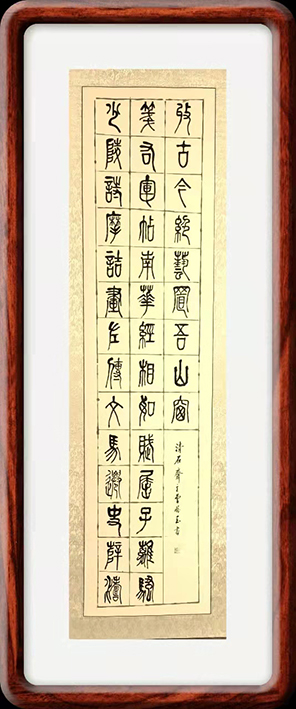 少陵詩摩詰畫左傳文馬遷史薛濤
箋右軍帖南華經相如賦屈子離騷
收古今絕藝置吾山窗
清石齋主